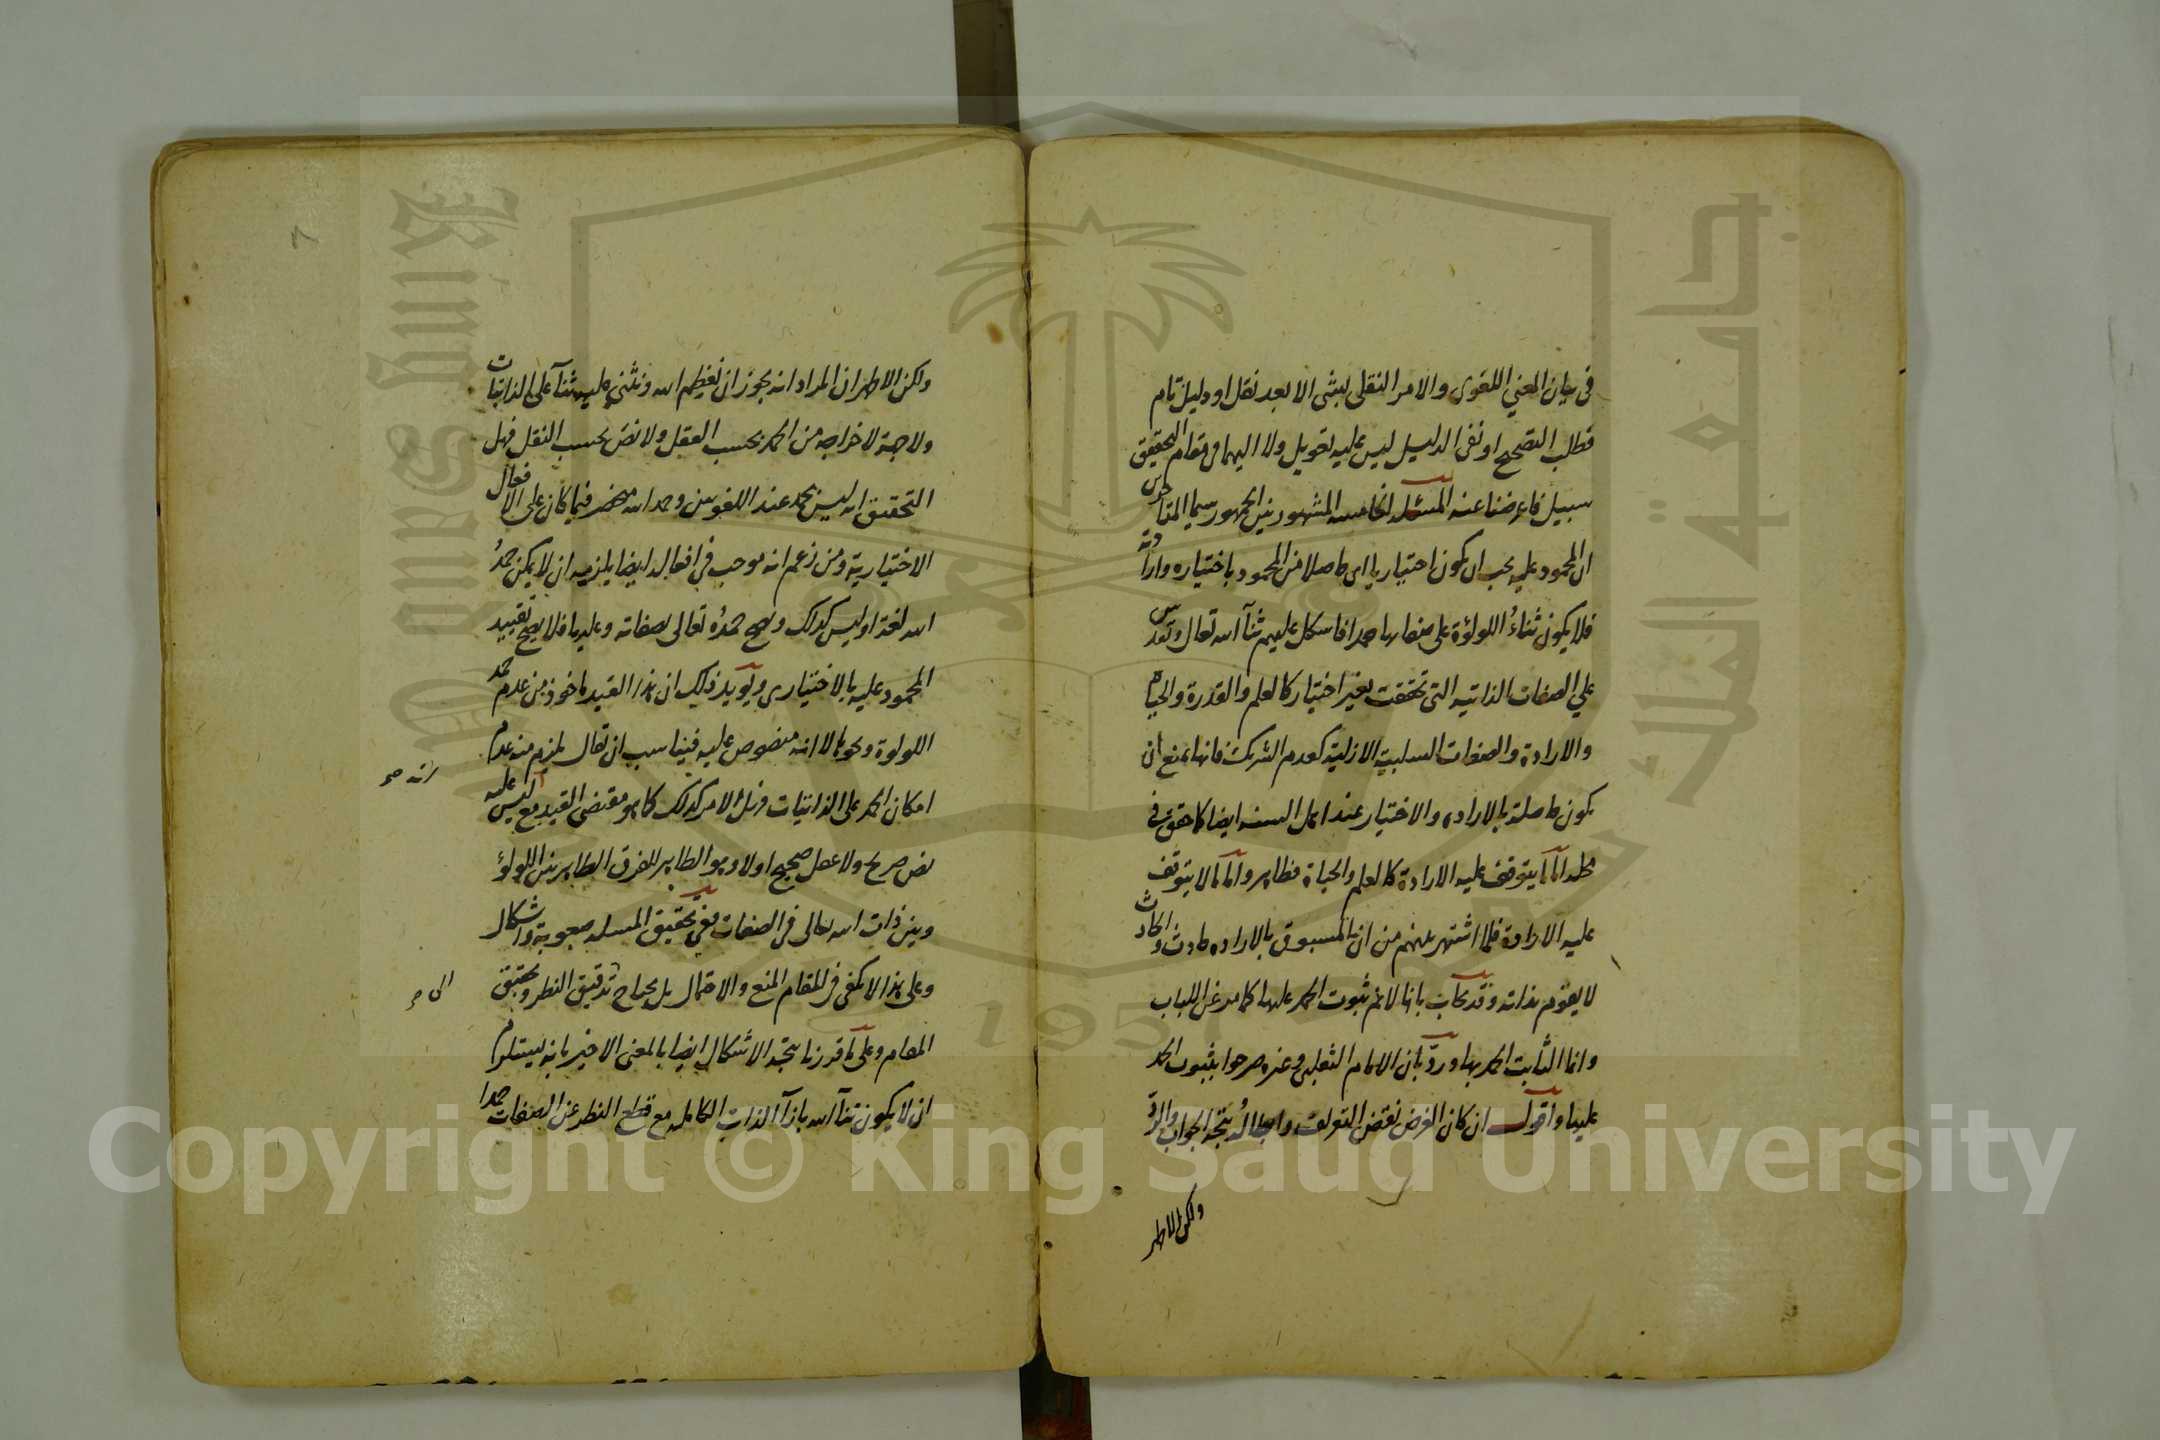 في بيان المعنى اللغوي والامر النقلي لا بعد نقل او دليل تام
فطلب التصحيح او نفى الدليل ليس عليه تعويل ولا اليهما في مقام التحقيق
سبيل فاعرضنا عنه المسئلة الخامسة المشهور بين الجمهور سيما
ان المحمود عليه يجب ان يكون اختياريا اى حاصلا من المحمود باختياره وارادته
فلا يكون ثناء اللؤلؤة على صفائها حمدا فاشكل عليهم ثنآ الله تعالى
على الصفات الذاتية التى تحققت بغير اختيار كالعلم والقدرة والحياة
والارادة والصفات السلبية الازلية كعدم الشريك فانها يمنع ان
يكون حاصلة بالارادة والاختيار عند اهل السنة ايضا كما حقق فى
محله اما ما يتوقف عليه الارادة كالعلم والحياة فظاهر واما ما لا يتوقف
عليه الارادة فلما اشتهر بينهم من ان المسبوق بالارادة حادث والحادث
لا يقوم بذاته وقد يجاب بانها لانم ثبوت الحمد عليها كما مر عن اللباب
وانما الثابت الحمد بها وردّ بان الامام الثعلبى وغيره صرحوا بثبوت الحمد
عليها واقول ان كان الغرض نقض التعريف وابطاله يتجه الجواب والردّ
ولكن الاظهر
ولكن الاظهر ان المراد انه يجوز ان نعظم الله ونثنى عليه ثنآ على الذاتيات
ولا جهة لاخراجه من الحمد بحسب العقل ولا نص بحسب النقل فهل
التحقيق انه ليس بحمد عند اللغويين وحمد الله منحصر فيما كان على الافعال
الاختيارية ومن زعم انه موجب فى افعاله ايضا يلزمه ان لا يمكن حمدُ
الله لغة او ليس كذلك ويصح حمدُه تعالى بصفاته وعليها فلا يصح تقييد
المحمود عليه بالاختيارى ويؤيد ذلك ان هذا القيد ماخوذ من عدم حمد
اللؤلؤة ونحوها لا انه منصوص عليه فيناسب ان يقال يلزم من عدم
انه صح
امكان الحمد على الذاتيات فهل الامر كذلك كما هو مقتضى القيد مع انه ليس عليه
نص صريح ولا عقل صحيح اولا وهو الظاهر للفرق الظاهر بين اللؤلؤ
وبين ذات الله تعالى فى الصفات ففى تحقيق المسئلة صعوبة واشكال
وعلى هذا لا يكفى فى المقام المنع والاحتمال بل يحتاج تدقيق النظر وتحقيق
الى صح
المقام وعلى ما قررنا يتجه الاشكال ايضا بالمعنى الاخير بانه يستلزم
ان لا يكون ثنآ الله بازآ الذات الكاملة مع قطع النظر عن الصفات حمدا
Copyright © King Saud University
جامعة الملك سعود
King Saud University
1957